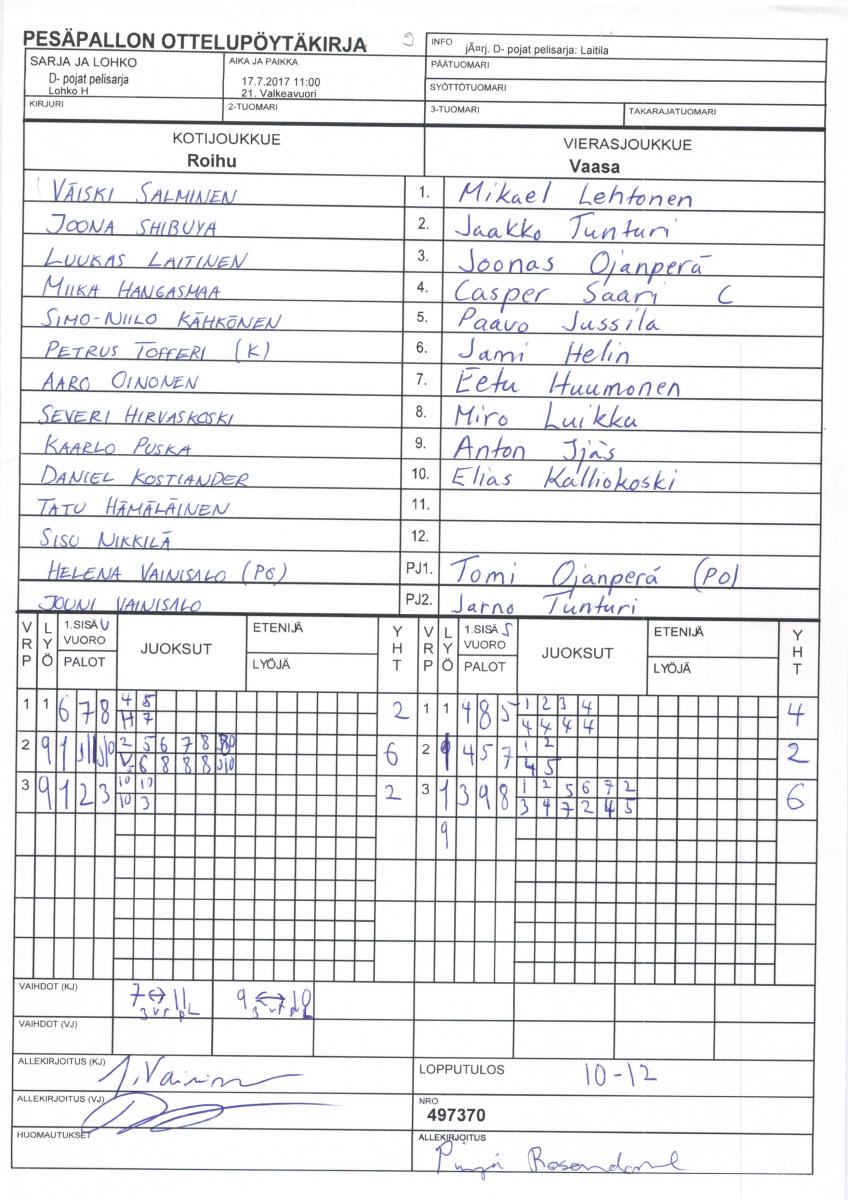 PESÄPALLON OTTELUPÖYTÄKIRJA 9
INFO jÃ¤rj. D- pojat pelisarja: Laitila
SARJA JA LOHKO
D- pojat pelisarja
Lohko H
AIKA JA PAIKKA
17.7.2017 11:00
21. Valkeavuori
PÄÄTUOMARI
SYÖTTÖTUOMARI
KIRJURI 2-TUOMARI 3-TUOMARI TAKARAJATUOMARI
KOTIJOUKKUE VIERASJOUKKUE
Roihu Vaasa
VÄISKI SALMINEN 1. Mikael Lehtonen
JOONA SHIBUYA 2. Jaakko Tunturi
LUUKAS LAITINEN 3. Joonas Ojanperä
MIIKA HANGASMAA 4. Casper Saari C
SIMO-NIILO KÄHKÖNEN 5. Paavo Jussila
PETRUS TOFFERI (K) 6. Jami Helin
AARO OINONEN 7. Eetu Huumonen
SEVERI HIRVASKOSKI 8. Miro Luikku
KAARLO PUSKA 9. Anton Ijäs
DANIEL KOSTIANDER 10. Elias Kalliokoski
TATU HÄMÄLÄINEN 11.
SISU NIKKILÄ 12.
HELENA VAINISALO (PO) PJ1. Tomi Ojanperä (PO)
JOUNI VAINISALO PJ2. Jarno Tunturi
VRP LYÖ 1.SISÄ U VUORO PALOT JUOKSUT ETENIJÄ LYÖJÄ YHT VRP LYÖ 1.SISÄ S VUORO PALOT JUOKSUT ETENIJÄ LYÖJÄ YHT
1 1 6 7 8 4 5 2 1 1 4 8 5 1 2 3 4 4
H 7 4 4 4 4
2 9 1 2 5 6 7 8 6 2 4 5 7 1 2 2
V 6 8 8 8 4 5
3 9 1 2 3 10 10 2 3 1 3 9 8 1 2 5 6 7 2 6
10 3 3 4 7 2 4 5
9
VAIHDOT (KJ) 7↔11 9↔10
3 vr pL 3 vr pL
VAIHDOT (VJ)
ALLEKIRJOITUS (KJ) J. Vainio
LOPPUTULOS 10-12
ALLEKIRJOITUS (VJ)
NRO
497370
HUOMAUTUKSET
ALLEKIRJOITUS